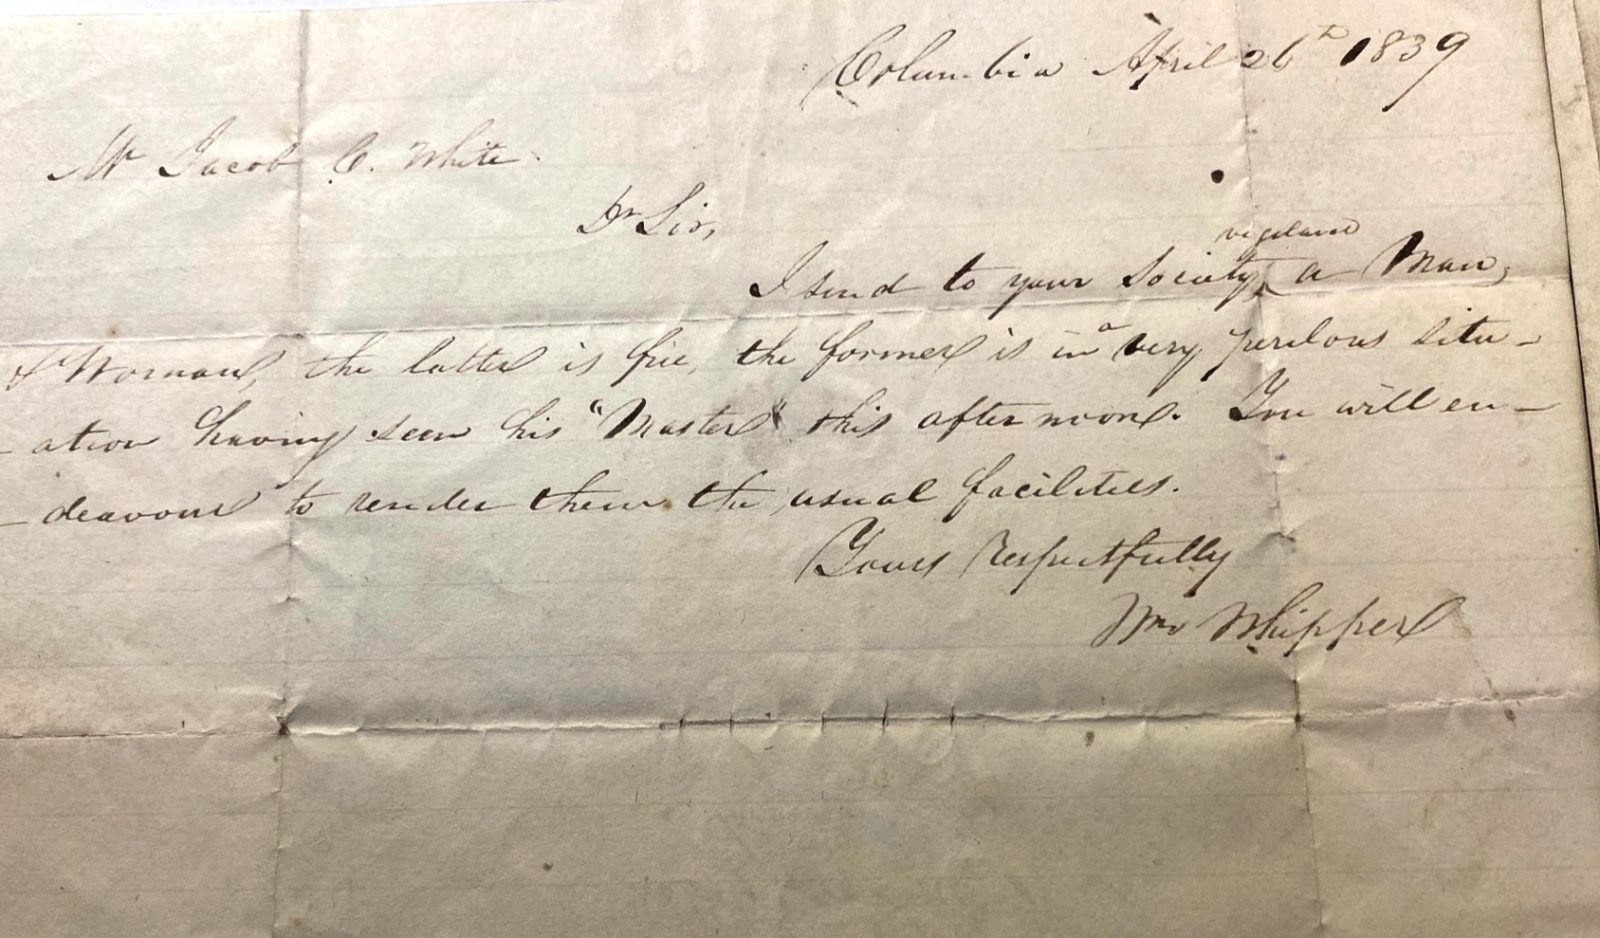 Columbia April 26th 1839
Mr Jacob C. White
Dr Sir,
vigilance
I send to your Society ‸ a Man,
& Woman, the latter is free, the former is in a very perilous situ-
-ation having seen his "Master" this afternoon. You will en-
-deavour to render them the usual facilities.
Yours Respectfully
Wm Whipper